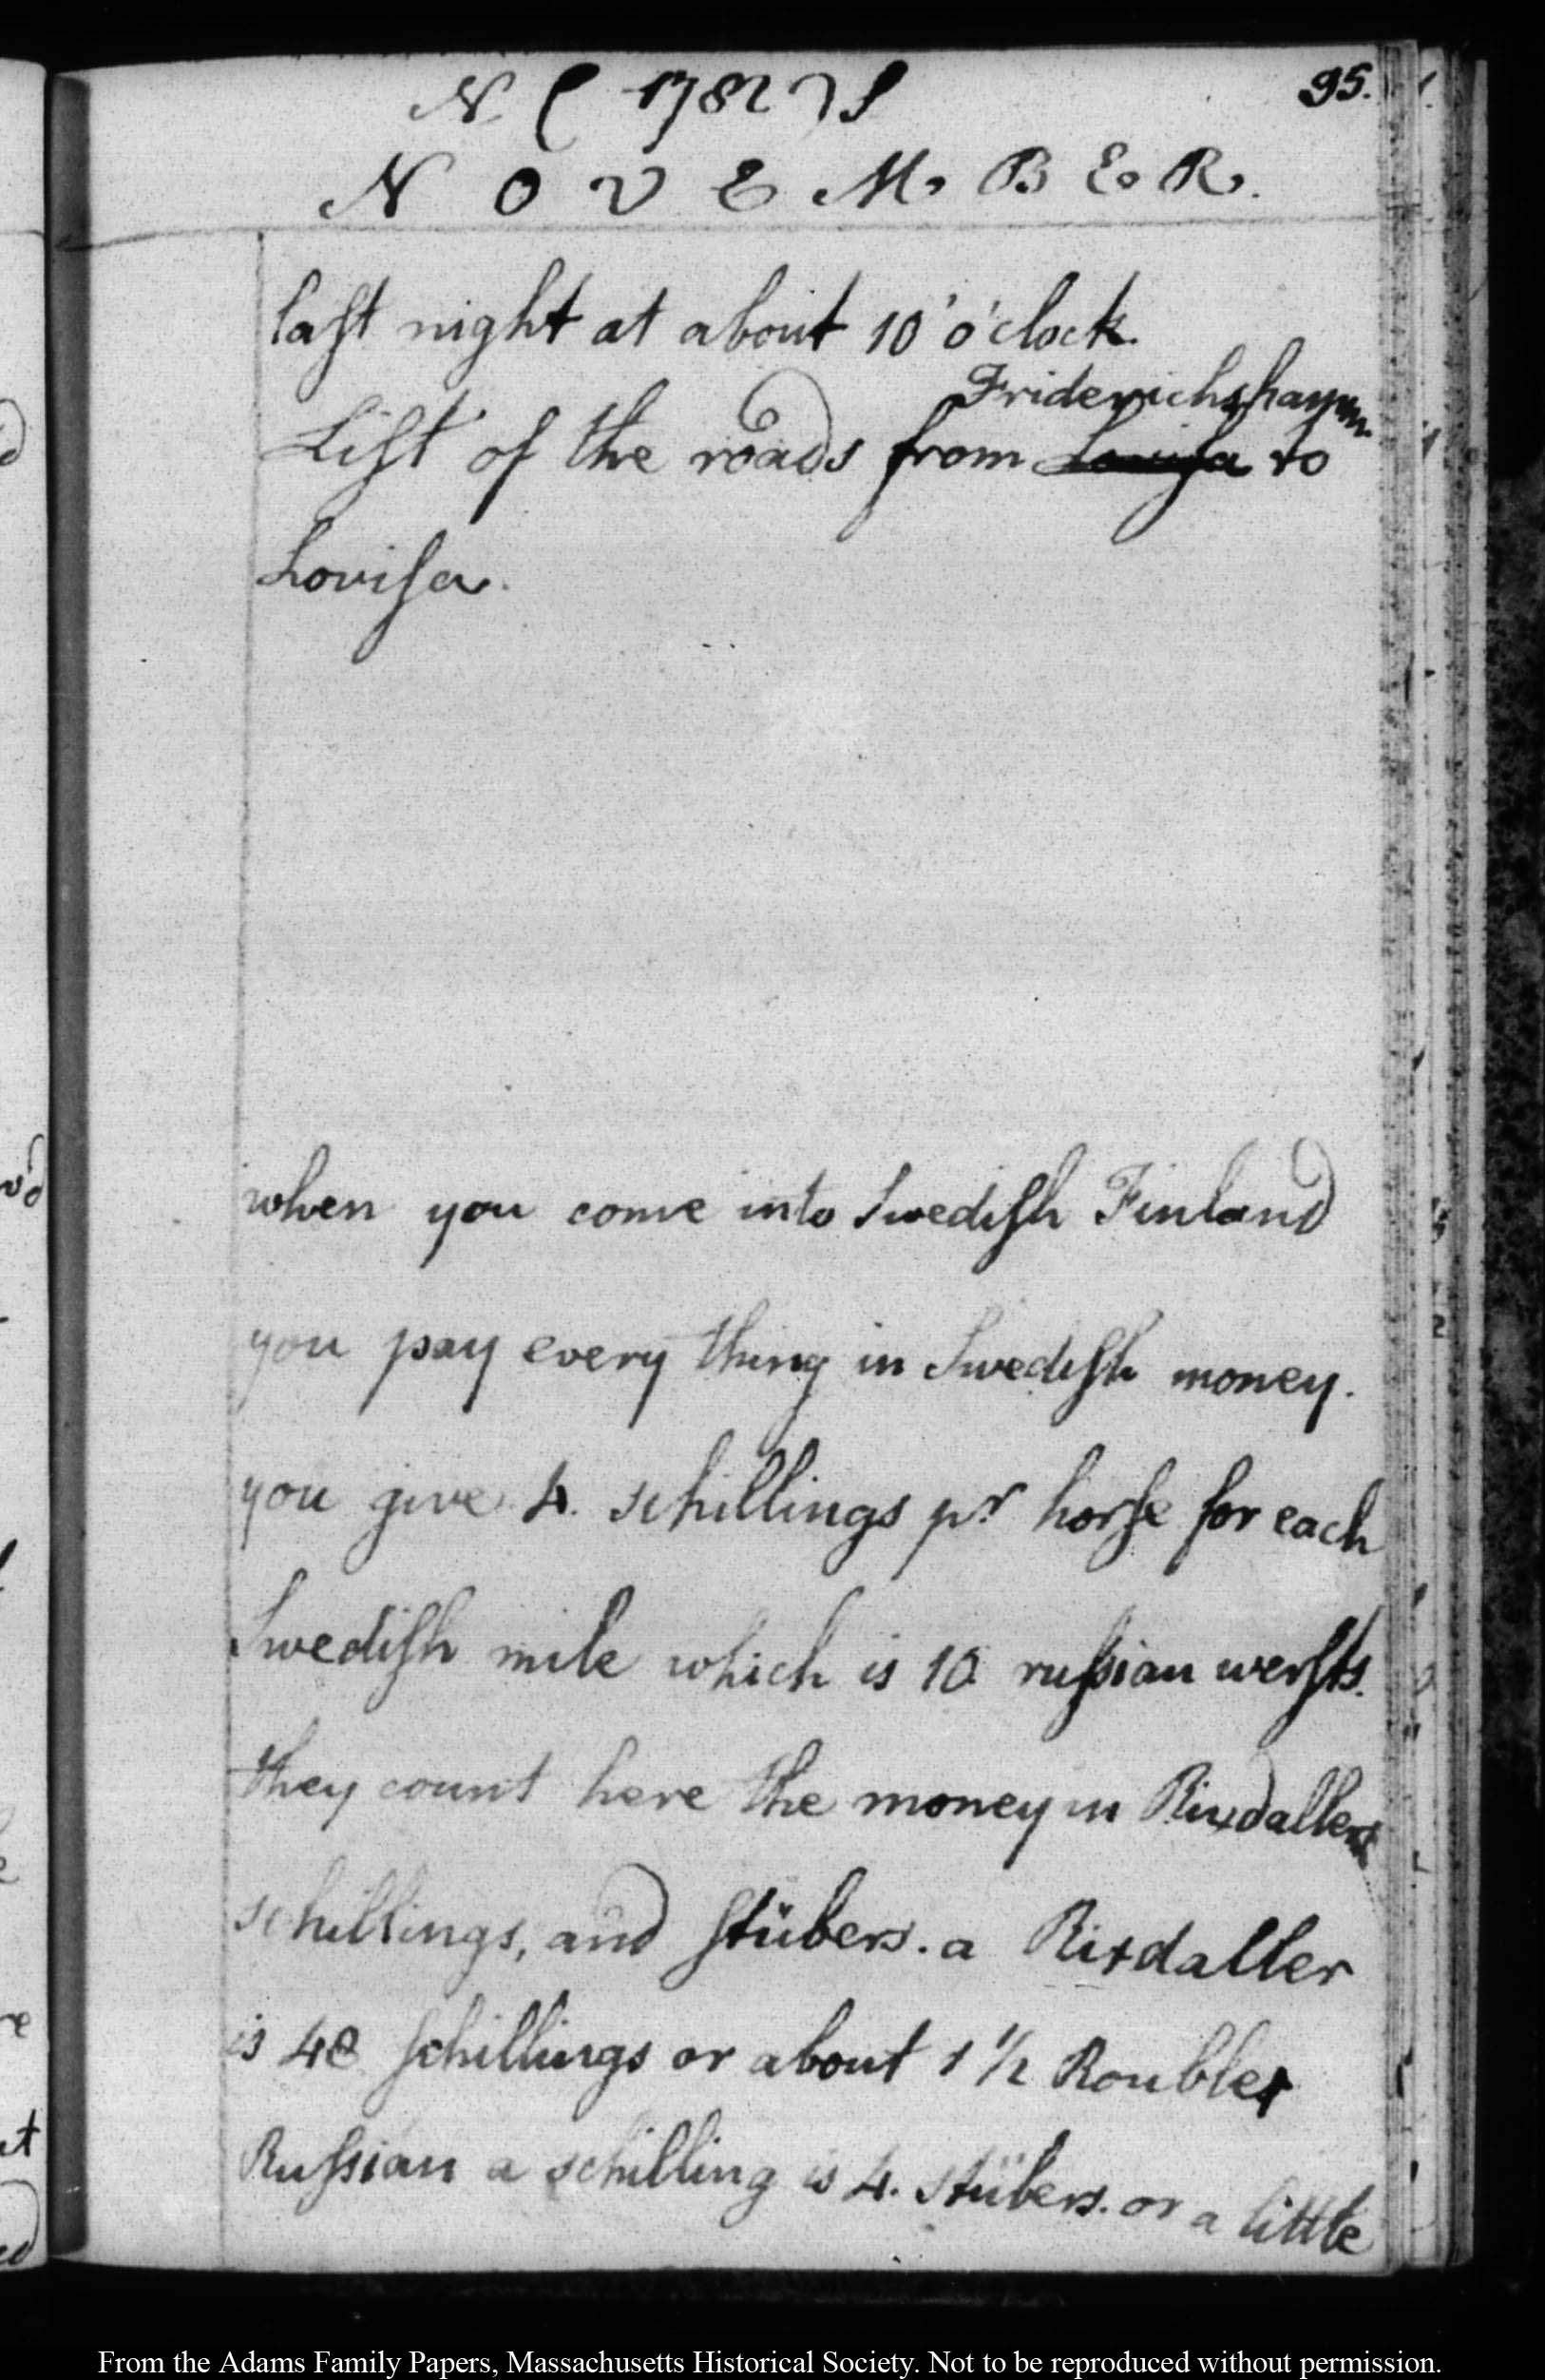 N. ( 1782 ) S
95.
NOVEM.BE.R.
last night at about 10 o'clock.
Friderichshamm
List of the roads from Lovisa to
Lovisa.
when you come into Swedish Finland
you pay every thing in Swedish money.
you give 4. schillings pr horse for each
Swedish mile which is 10 russian wersts.
they count here the money in Rixdallers
schillings, and stübers. a Rixdaller
is 48 schillings or about 1 1/2 Roubles
Russian a schilling is 4. stübers. or a little
From the Adams Family Papers, Massachusetts Historical Society. Not to be reproduced without permission.